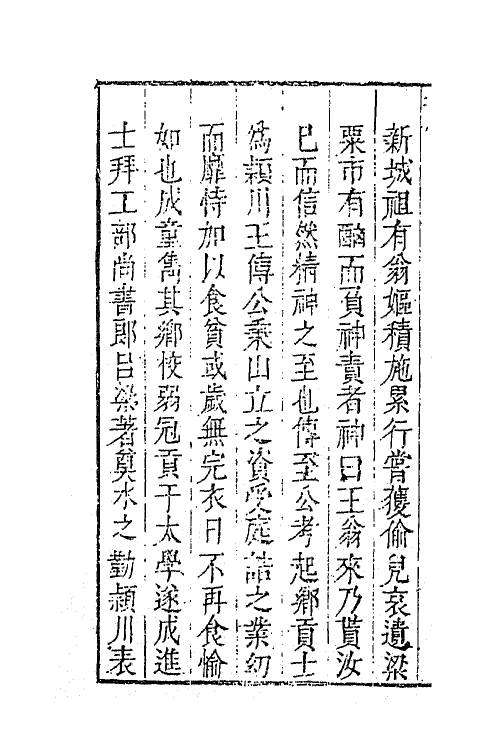 新城祖有翁嫗積施累行嘗獲偷兒哀遺梁
粟市有酗而頁神責者神曰王翁來乃貰汝
已而信然精神之至也傳至公考起鄉貢士
為穎川王傳公乘山立之資受庭誥之業幼
而靡恃加以食貧或歲無完衣日不再食愉
如也成童雋其鄉校弱冠貢于太學遂成進
士拜工部尚書郎呂梁著奠水之勤潁川表